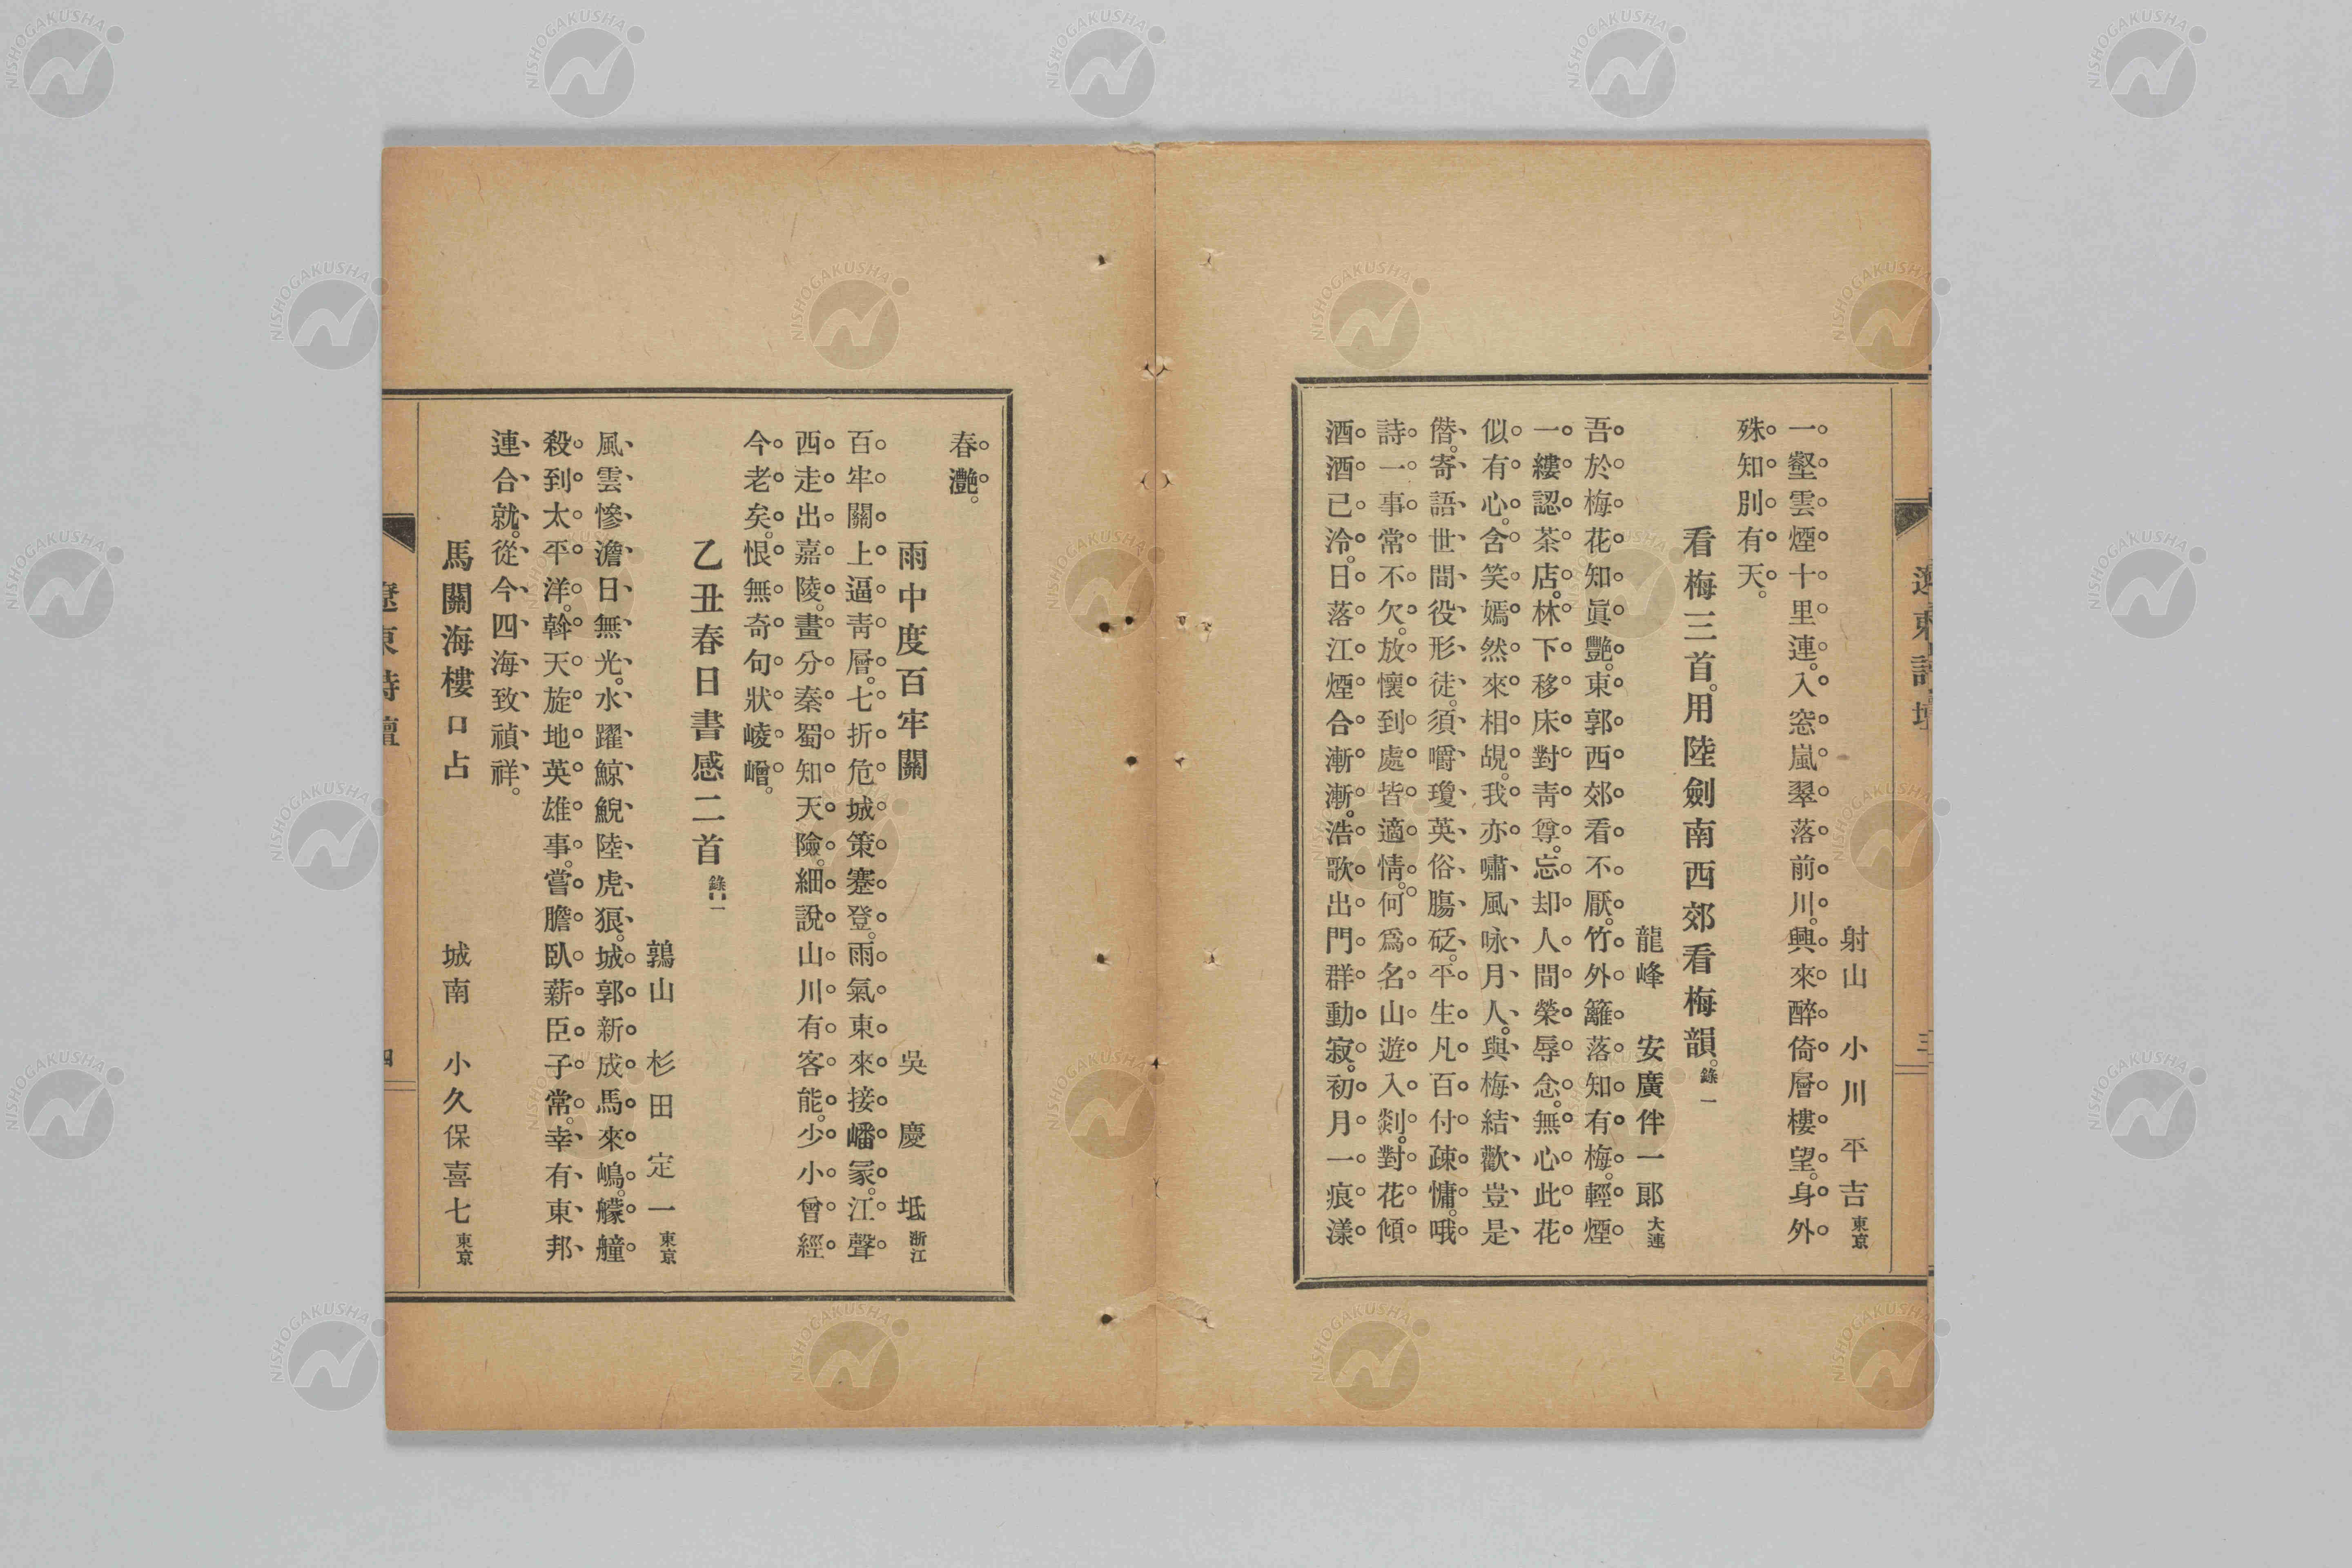 遼東詩壇
三
射山 小川平吉 東京
一壑雲煙十里連。入窓嵐翠落前川。興來醉倚層樓望。身外
殊知別有天。
看梅三首。用陸劍南西郊看梅韻。錄一
龍峰 安廣伴一郎 大連
吾於梅花知眞艷。東郭西郊看不厭。竹外籬落知有梅。輕煙
一縷認茶店。林下移床對靑尊。忘却人間榮辱念。無心此花
似有心。含笑嫣然來相覘。我亦嘯風咏月人。與梅結歡豈是
僭。寄語世間役形徒。須嚼瓊英俗腸砭。平生凡百付疎慵。哦
詩一事常不欠。放懷到處皆適情。何爲名山遊入剡。對花傾
酒酒已冷。日落江煙合漸漸。浩歌出門群動寂。初月一痕漾
春灔。
雨中度百牢關
吳慶坻 浙江
百牢關上逼靑層。七折危城策蹇登。雨氣東來接嶓冢。江聲
西走出嘉陵。畫分秦蜀知天險。細說山川有客能。少小曾經
今老矣。恨無奇句狀崚嶒。
乙丑春日書感二首 錄一
鶉山 杉田定一 東京
風雲慘澹日無光。水躍鯨鯢陸虎狼。城郭新成馬來嶋。艨艟
殺到太平洋。斡天旋地英雄事。嘗膽臥薪臣子常。幸有東邦
連合就。從今四海致禎祥。
馬關海樓口占
城南 小久保喜七 東京
遼東詩壇
四
NISHOGAKUSHA